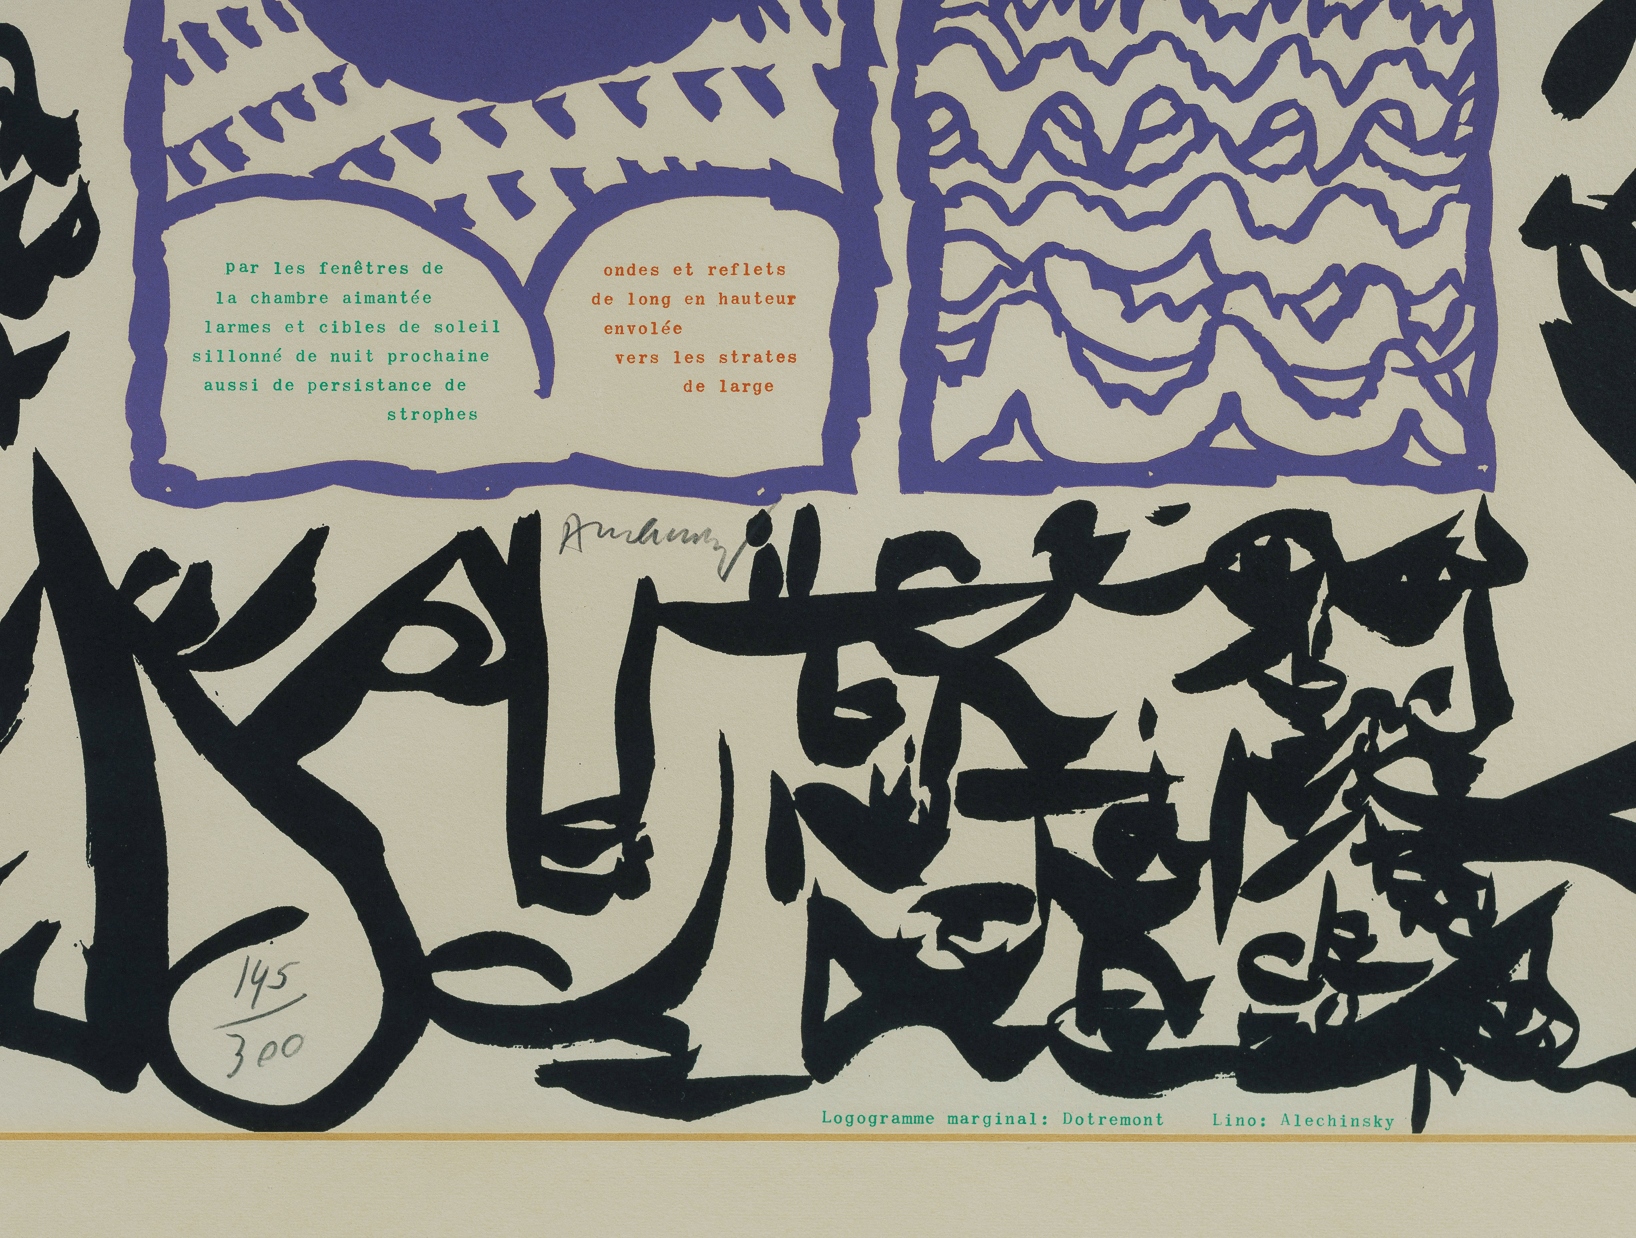 par les fenêtres de
la chambre aimantée
larmes et cibles de soleil
sillonné de nuit prochaine
aussi de persistance de
strophes
ondes et reflets
de long en hauteur
envolée
vers les strates
de large
Alechinsky
145
300
Logogramme marginal: Dotremont Lino: Alechinsky